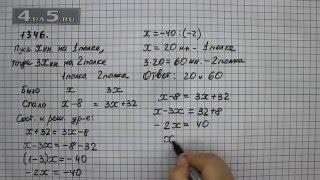 4DA5.RU
1346.
Пусть x кн. на 1 полке,
тогда 3x кн. на 2 полке
1 полка 2 полка
Было x 3x
Стало x-8 = 3x+32
Сост. и реш. ур-е:
x+32 = 3x-8
x-3x = -8-32
(1-3)x = -40
-2x = -40
x = -40:(-2)
x = 20 кн. - 1 полка
3·20 = 60 кн. - 2 полка
Ответ: 20 и 60
x-8 = 3x+32
x-3x = 32+8
-2x = 40
x